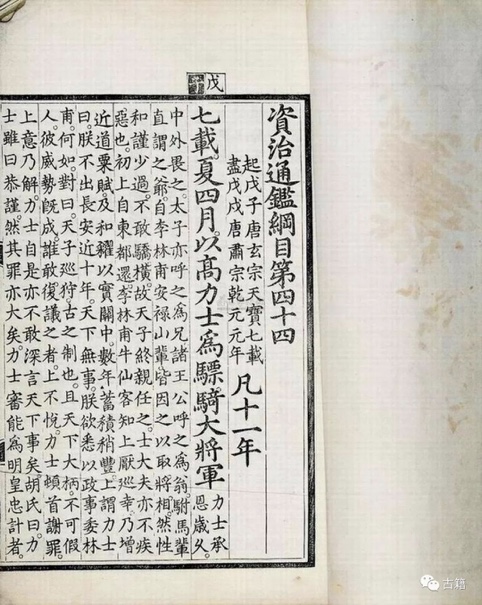 戊
資治通鑑綱目第四十四
起戊子唐玄宗天寶七載
盡戊戌唐肅宗乾元元年
凡十一年
七載。夏四月。以高力士爲驃騎大將軍
力士承
恩歲久。
中外畏之。太子亦呼之爲兄諸王公呼之爲翁。駙馬輩
直謂之爺。自李林甫安祿山輩。皆因之以取將相。然性
和謹少過。不敢驕橫。故天子終親任之。士大夫亦不疾
惡也。初上自東都還。李林甫牛仙客知上厭巡幸。乃增
近道粟賦及和糴以實關中。數年蓄積稍豐。上謂力士
曰。朕不出長安近十年。天下無事。朕欲悉以政事委林
甫。何如。對曰。天子巡狩。古之制也。且天下大柄。不可假
人。彼威勢旣成。誰敢復議之者。上不悅。力士頓首謝罪。
上意乃解。力士自是亦不敢深言天下事矣。胡氏曰。力
士雖曰恭謹。然其罪亦大矣。力士審能爲明皇忠計者。
古籍